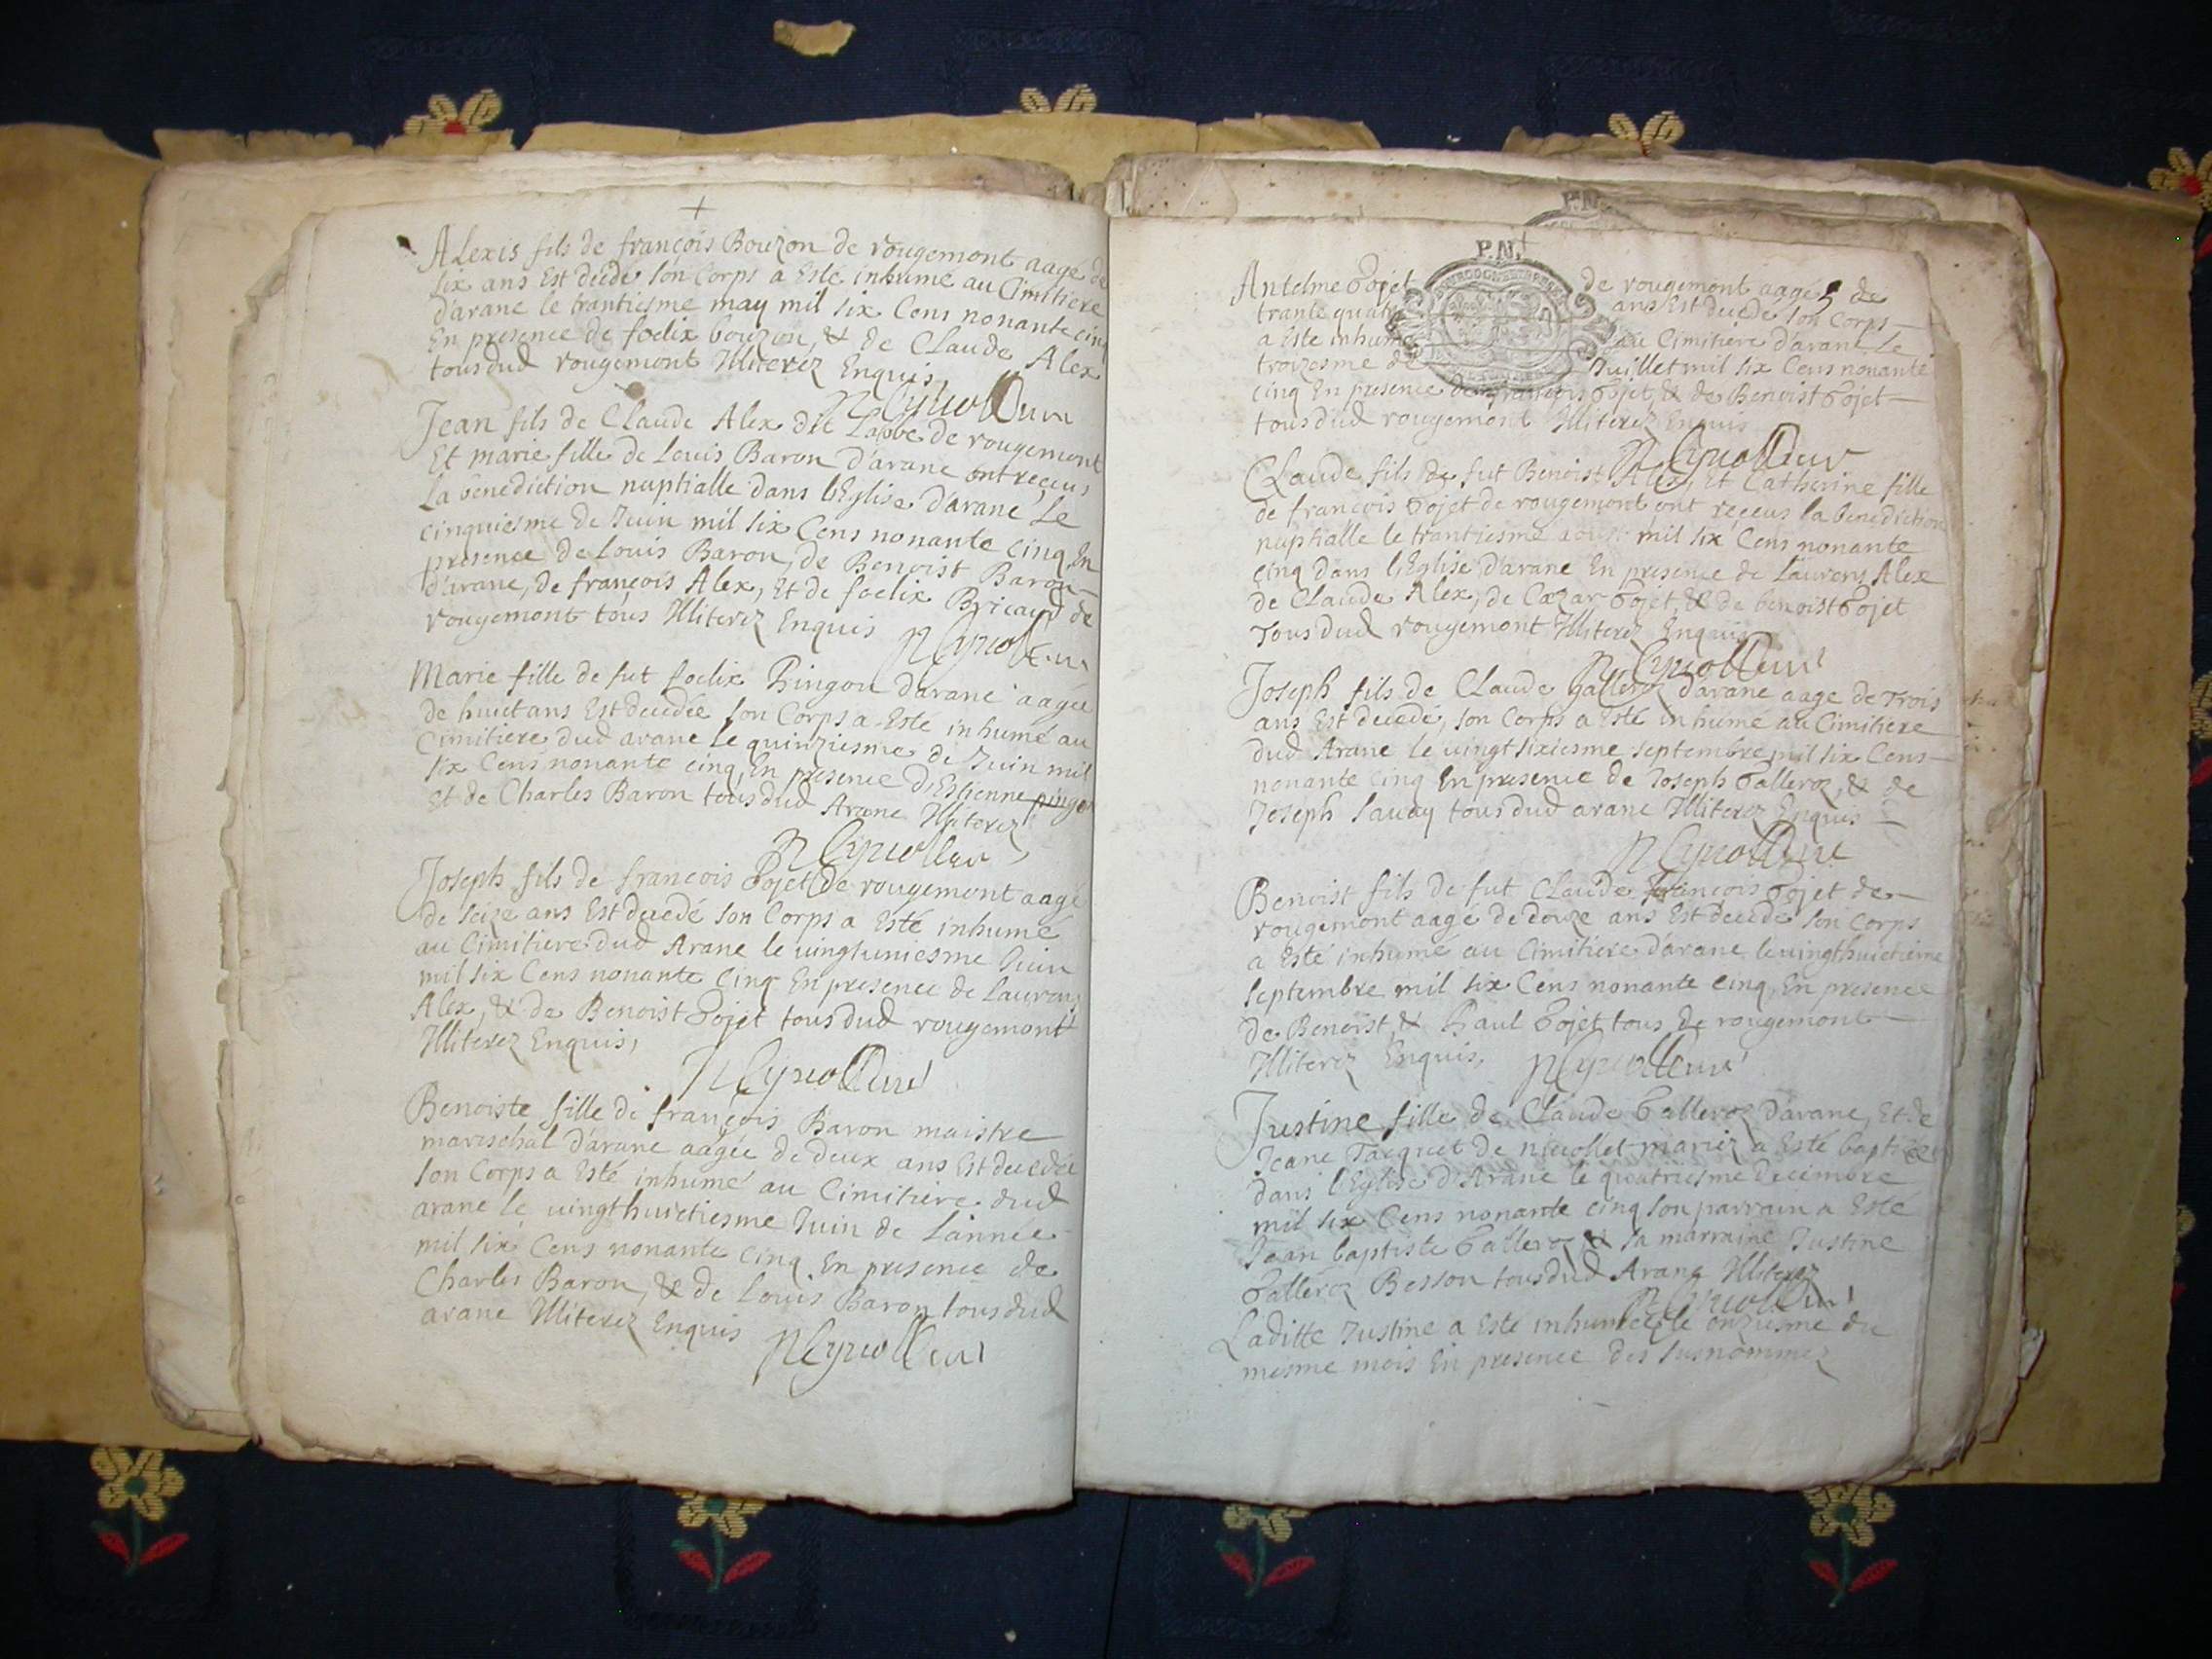 Alexis fils de françois Bouzon de rougemont aagé de
six ans Est decede son Corps a Esté inhumé au Cimitiere
d'arane le trantiesme may mil six Cens nonante cinq
En presence de foelix bouzon, & de Claude Alex
tous dud rougemont Illiterez Enquis
Jean fils de Claude Alex dit Labbe de rougemont
Et marie fille de Louis Baron d'arane ont receus
La benediction nuptialle dans lEglise d'arane Le
cinquiesme de Juin mil six Cens nonante cinq En
presence de Louis Baron, de Benoist Baron
d'arane, de françois Alex, Et de foelix Bricaud de
rougemont tous Illiterez Enquis
Marie fille de fut foelix Pingon darane aagée
de huict ans Est decedée son Corps a Este inhumé au
Cimitiere dud arane Le quinziesme de Juin mil
six Cens nonante cinq, En presence d'Estienne pingon
Et de Charles Baron tous dud Arane Illiterez
Joseph fils de françois Gojet de rougemont aagé
de seize ans Est decedé son Corps a Esté inhumé
au Cimitiere dud Arane le uingtuniesme Juin
mil six Cens nonante Cinq En presence de Laurens
Alex, & de Benoist Gojet tous dud rougemont
Illiterez Enquis,
Benoiste fille de françois Baron maistre
mareschal d'arane aagée de deux ans Est decedée
son Corps a Esté inhumé au Cimitiere dud
arane le uingthuictiesme Juin de L'année
mil six Cens nonante Cinq En presence de
Charles Baron, & de Louis Baron tous dud
arane Illiterez Enquis
P.N.
Antelme Gojet de rougemont aagé de
trante quatre ans Est decedé son Corps
a Este inhumé au Cimitiere d'arane Le
troizesme de Juillet mil six Cens nonante
cinq En presence de françois Gojet, & de Benoist Gojet
tous dud rougemont Illiterez Enquis
Claude fils de fut Benoist Alex, Et Catherine fille
de françois Gojet de rougemont ont receus la benediction
nuptialle le trantiesme aoust mil six Cens nonante
cinq dans l'Eglise d'arane En presence de Laurens Alex
de Claude Alex, de Cæzar Gojet, & de benoist Gojet
Tous dud rougemont Illiterez Enquis
Joseph fils de Claude galleroz d'arane aage de Trois
ans Est decedé, son Corps a Esté inhumé au Cimitiere
dud Arane le uingt sixiesme septembre mil six Cens
nonante Cinq En presence de Joseph Galleroz, & de
Joseph Sauay tous dud arane Illiterez Enquis
Benoist fils de fut Claude françois Gojet de
rougemont aagé de douze ans Est decedé son Corps
a Esté inhumé au Cimitiere d'arane le uingthuictieme
septembre mil six Cens nonante cinq, En presence
de Benoist & Paul Gojet tous de rougemont
Illiterez Enquis,
Justine fille de Claude Galleroz d'arane, Et de
Jeane Jacquet de nicollet mariez a Esté baptizée
dans l'Eglise d'Arane le quatriesme decembre
mil six Cens nonante cinq son parrain a Esté
Jean baptiste Galleroz & sa marraine Justine
Galleroz Besson tous dud Arane Illiterez
Laditte Justine a Esté inhumée le onziesme du
mesme mois En presence des susnommez